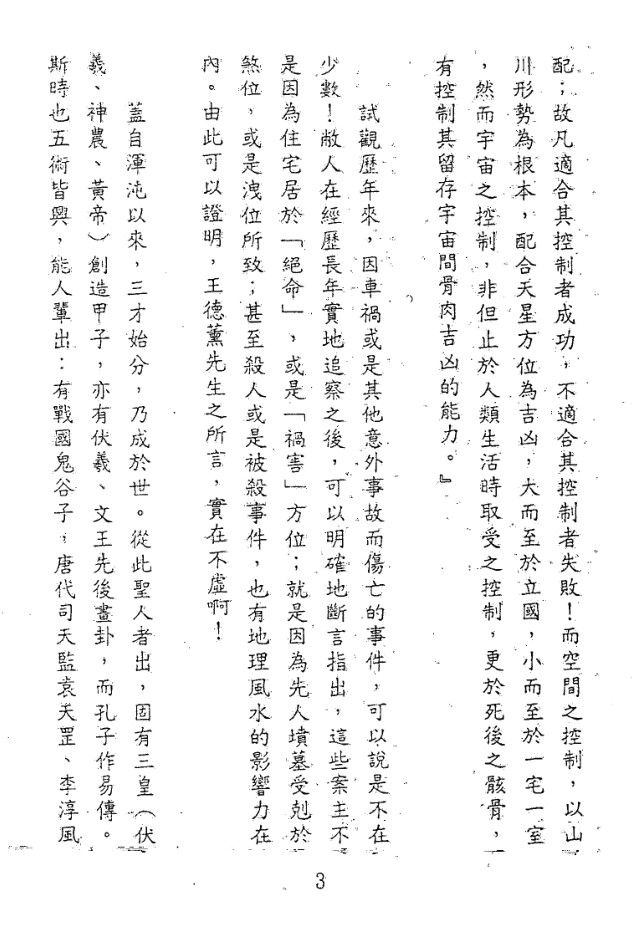 配；故凡適合其控制者成功，不適合其控制者失敗！而空間之控制，以山
川形勢為根本，配合天星方位為吉凶，大而至於立國，小而至於一宅一室
，然而宇宙之控制，非但止於人類生活時取受之控制，更於死後之骸骨，
有控制其留存宇宙間骨肉吉凶的能力。』
試觀歷年來，因車禍或是其他意外事故而傷亡的事件，可以說是不在
少數！敝人在經歷長年實地追察之後，可以明確地斷言指出，這些案主不
是因為住宅居於「絕命」，或是「禍害」方位；就是因為先人墳墓受剋於
煞位，或是洩位所致；甚至殺人或是被殺事件，也有地理風水的影響力在
內。由此可以證明，王德薰先生之所言，實在不虛啊！
蓋自渾沌以來，三才始分，乃成於世。從此聖人者出，固有三皇（伏
羲、神農、黃帝）創造甲子，亦有伏羲、文王先後畫卦，而孔子作易傳。
斯時也五術皆興，能人輩出：有戰國鬼谷子，唐代司天監袁天罡、李淳風
3